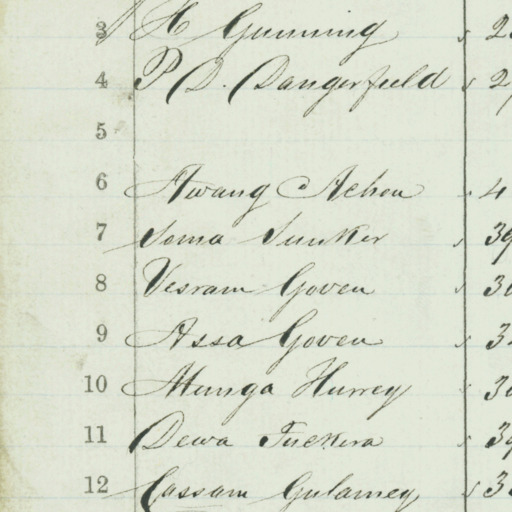 3 H Gunning 2
4 P D. Dangerfield 2
5
6 Awang Achou 4
7 Soma Sunker 39
8 Vesram Goven 3
9 Assa Goven 3
10 Munga Hurrey 3
11 Dewa Tuckera 39
12 Cassam Gulamey 3